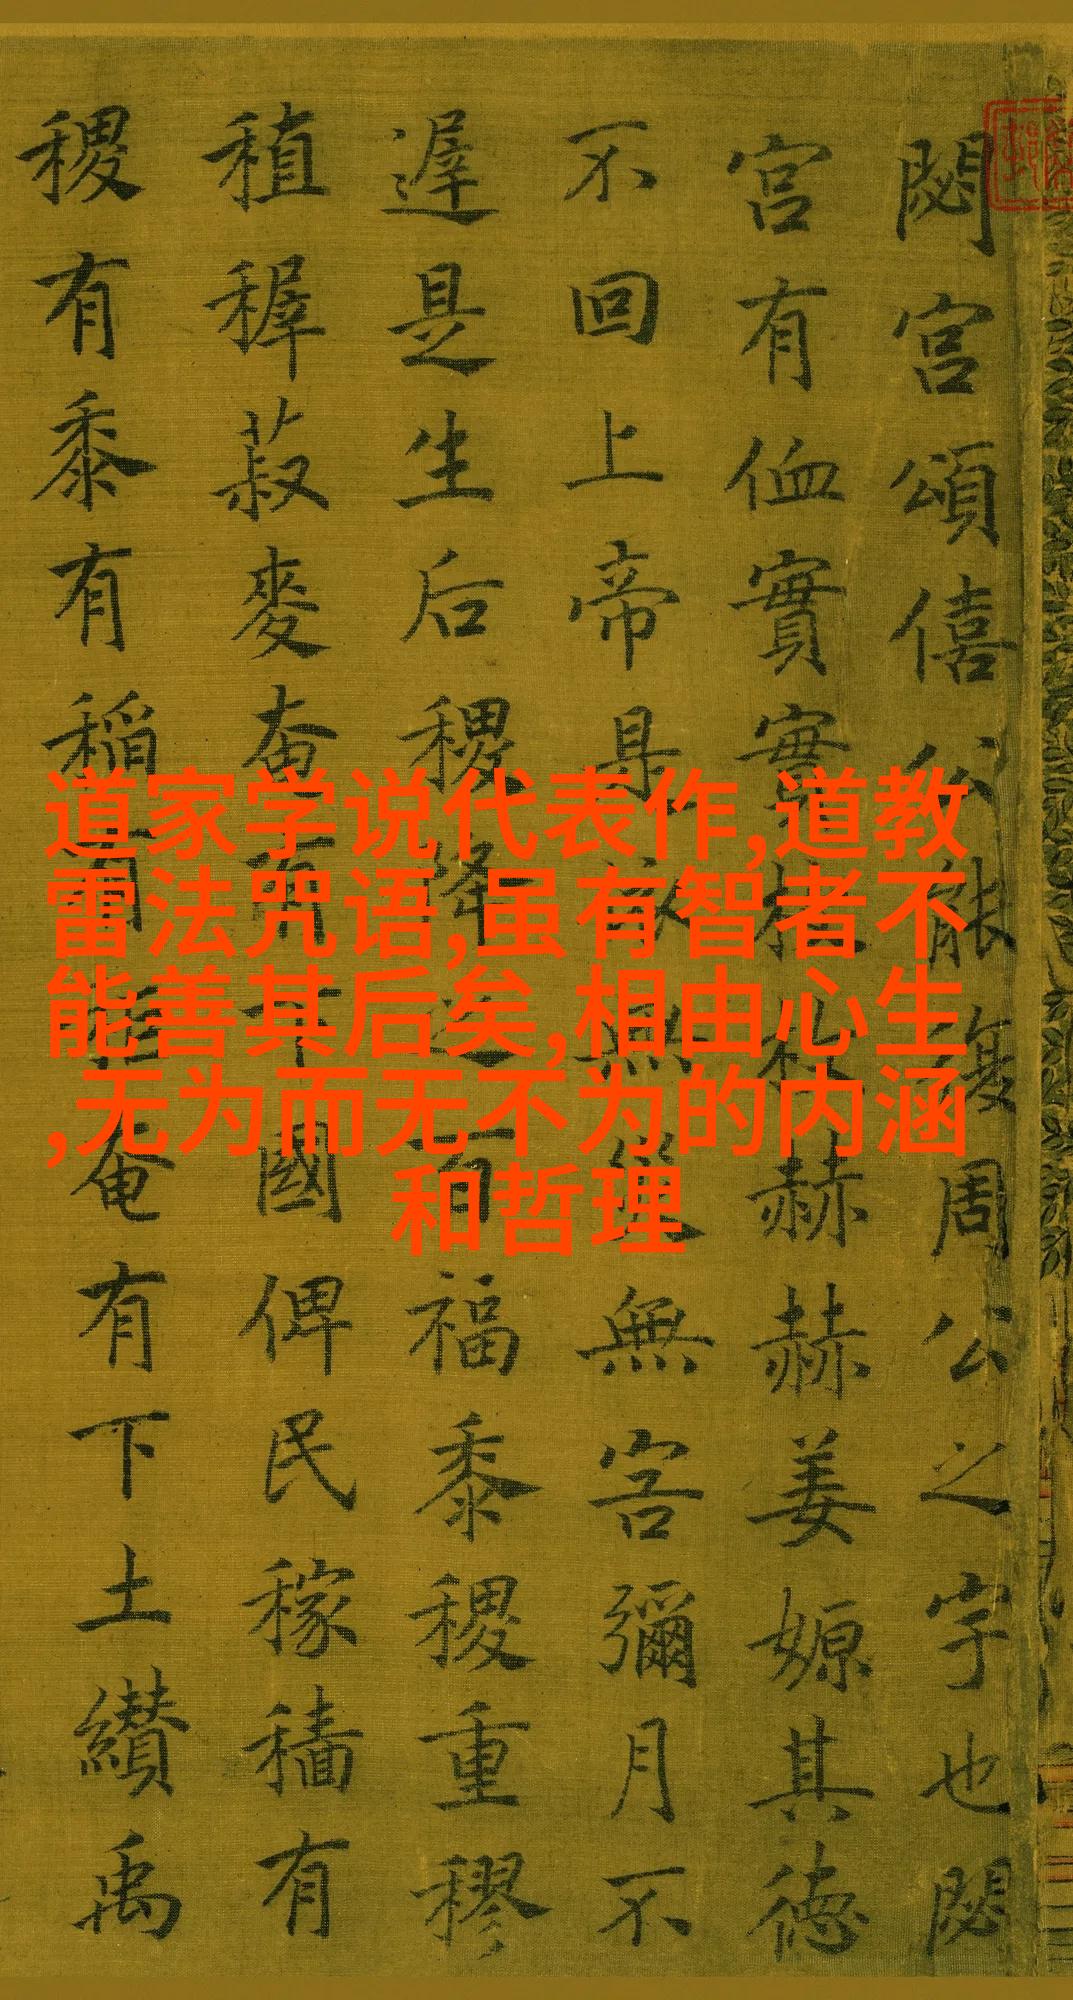 閟宮頌僖公能復周公之宇也閟
宮有侐實實枚枚赫赫姜嫄其德
不回上帝是依無災無害彌月不
遲是生后稷降之百福黍稷重穋
稙穉菽麥奄有下國俾民稼穡有
稷有黍有稻有秬奄有下土纘禹
道家学说代表作,道教
雷法咒语,虽有智者不
能善其后矣,相由心生
,无为而无不为的内涵
和哲理